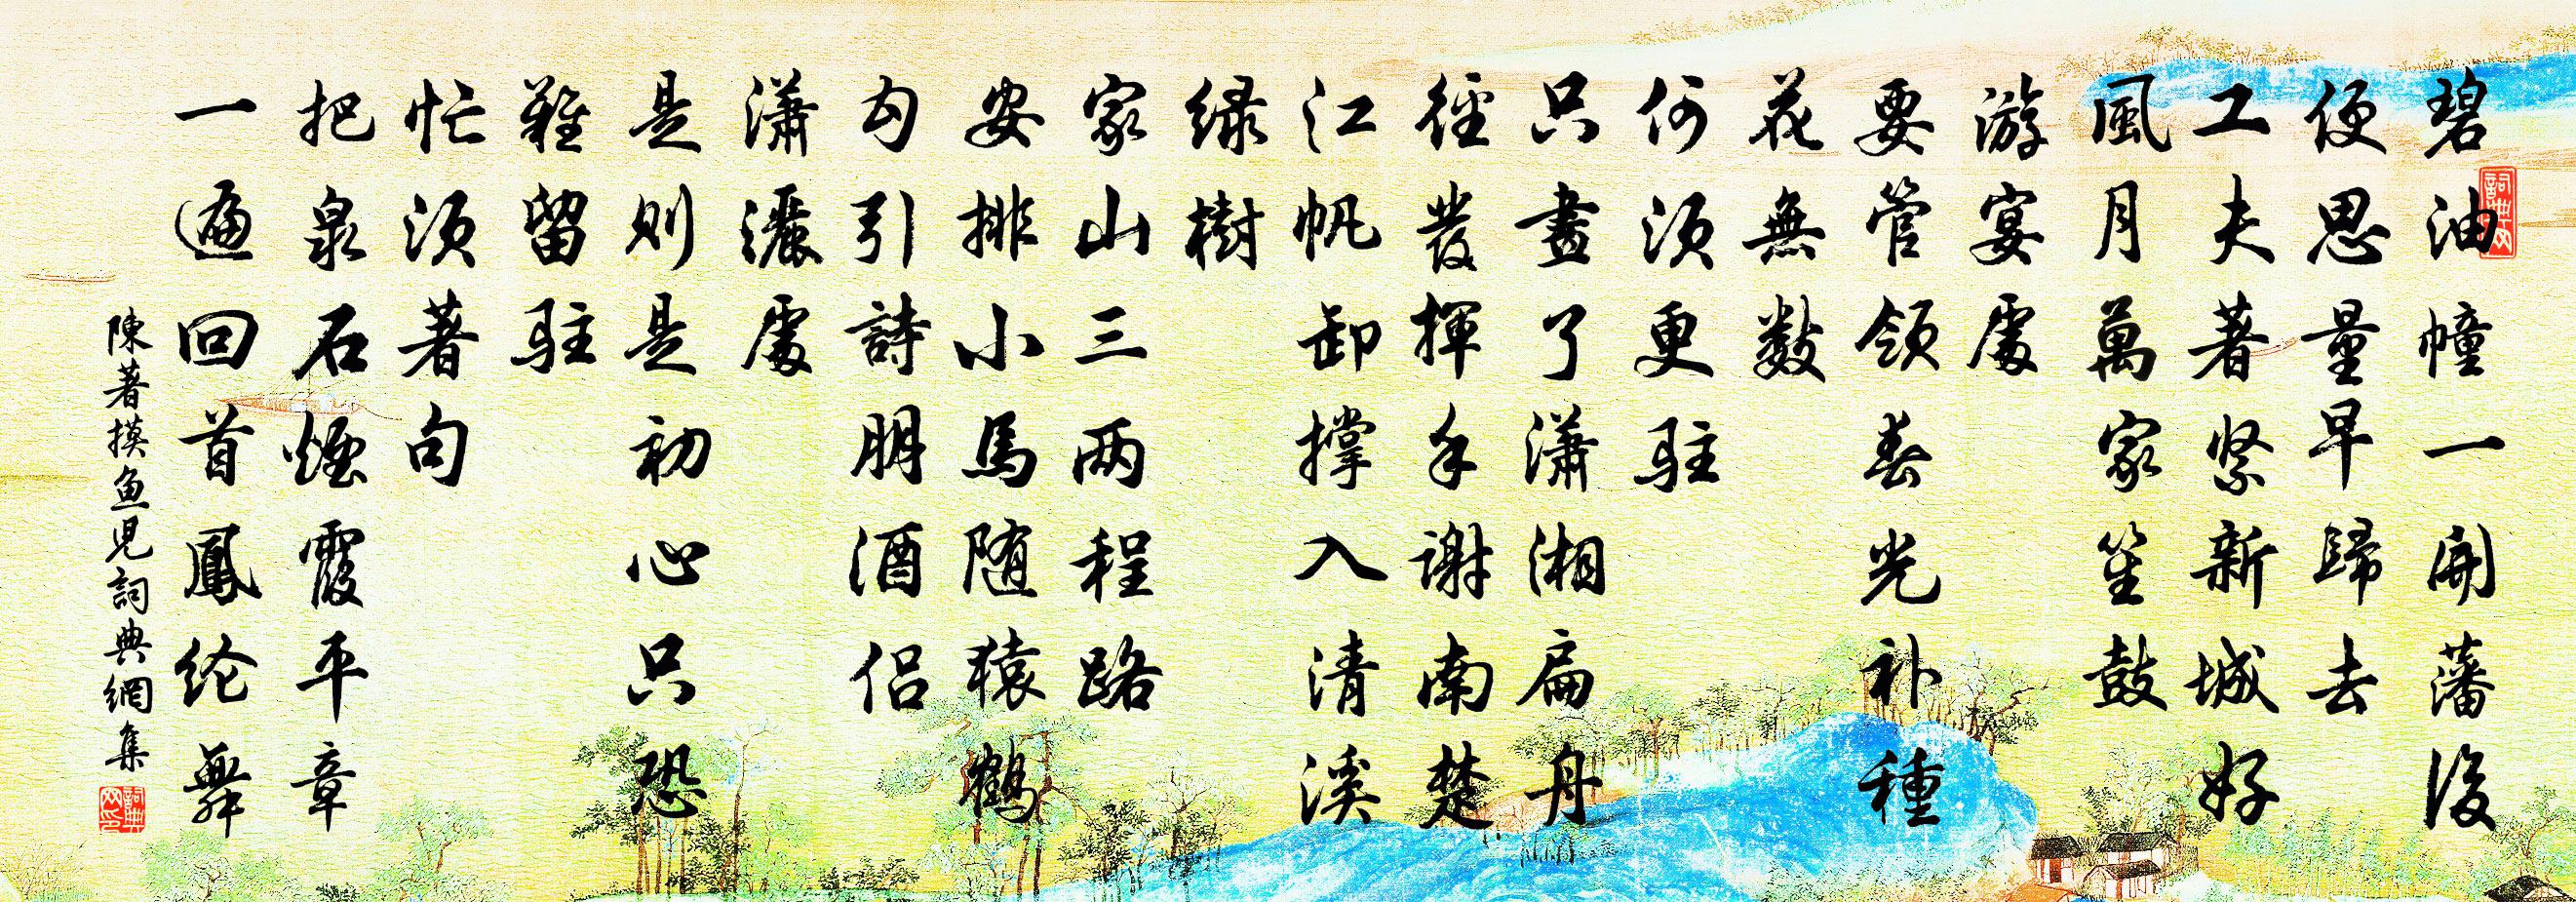 碧油幢一開藩後
便思量早歸去
工夫著緊新城好
風月萬家笙鼓
游宴處
要管領春光补種
花無數
何須更駐
只畫了瀟湘扁舟
徑發揮手謝南楚
江帆卸撑入清溪
绿樹
家山三两程路
安排小馬随猿鶴
勾引詩朋酒侣
瀟灑處
是則是初心只恐
難留駐
忙須著句
把泉石煙霞平章
一遍回首鳳纶舞
陳著摸鱼兒詞典網集